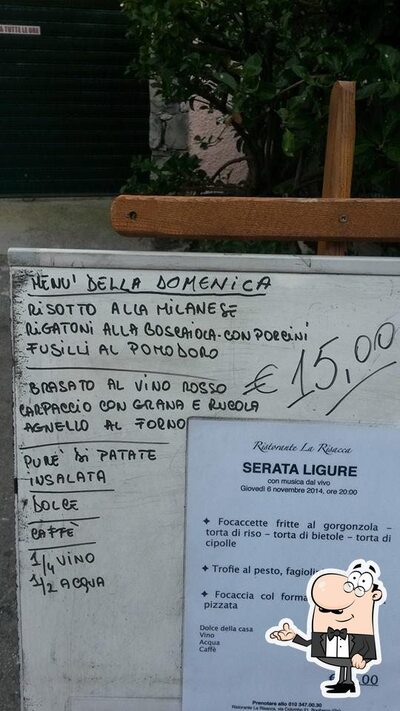 A TUTTE LE ORE
MENU' DELLA DOMENICA
RISOTTO ALLA MILANESE
RIGATONI ALLA BOSCAIOLA - CON PORCINI
FUSILLI AL POMODORO
€ 15,00
BRASATO AL VINO ROSSO
CARPACCIO CON GRANA E RUCOLA
AGNELLO AL FORNO
PURE' DI PATATE
INSALATA
DOLCE
CAFFÈ
1/4 VINO
1/2 ACQUA
Ristorante La Risacca
SERATA LIGURE
con musica dal vivo
Giovedì 6 novembre 2014, ore 20:00
✦ Focaccette fritte al gorgonzola –
torta di riso – torta di bietole – torta di
cipolle
✦ Trofie al pesto, fagiol
✦ Focaccia col forma
pizzata
Dolce della casa
Vino
Acqua
Caffè
,00
Prenotare allo 010 347.00.30
Ristorante La Risacca, via